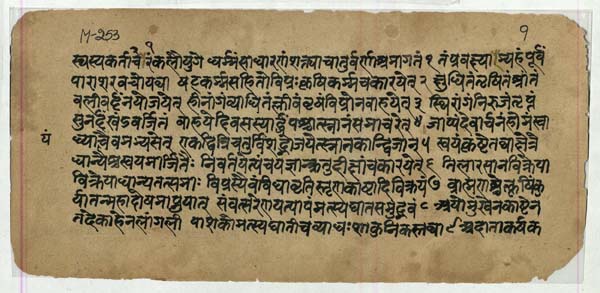 M-253
१
स्थस्य कर्माचारं कलौ युगे धर्मं साधारणं शक्त्या चातुर्वर्णाश्रमागतं १ तं प्रवक्ष्याम्यहं पूर्वं
पाराशरवचो यथा षट्कर्मसहितो विप्रः कृषिकर्म च कारयेत् २ क्षुधितं तृषितं श्रांतं
बलीवर्दं न योजयेत् हीनांगं व्याधितं क्लीबं वृषं विप्रो न वाहयेत् ३ स्थिरांगं निरुजं तृप्तं
सुनर्दं षंडवर्जितं वाहयेद्दिवसस्यार्द्धं पश्चात्स्नानं समाचरेत् ४ जाप्यं देवार्चनं होमं स्वा
ध्यायं चैवमभ्यसेत् एकद्वित्रिचतुर्विप्रान् स्नातकान्द्विजान् ५ स्वयं कृष्टे तथा क्षेत्रे
यं
धान्यैश्च स्वयमार्जितैः निर्वपेत्पंचयज्ञान् क्रतुदीक्षां च कारयेत् ६ तिला रसा न विक्रेया
विक्रेया धान्यतत्समाः विप्रस्यैवंविधा वृत्तिस्तृणकाष्ठादिविक्रयं ७ ब्राह्मणश्चेत्कृषिं कु
र्यात्तन्महादोषमाप्नुयात् संवत्सरेण यत्पापं मत्स्यघातसमुद्भवं ८ अयोमुखेन काष्ठेन
तदेकाहेन लांगली पाशको मत्स्यघाती च व्याधः शाकुनिकस्तथा ९ अदाता कर्षक